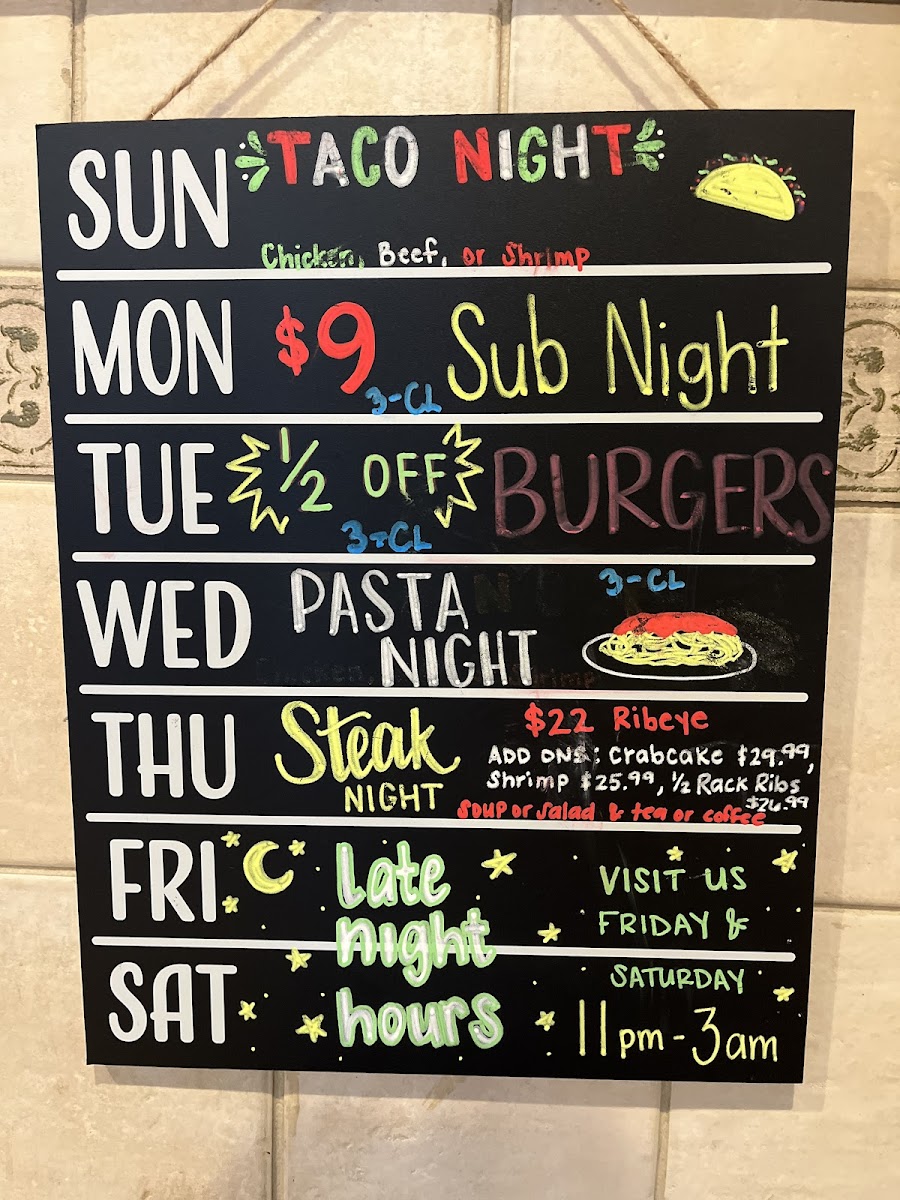 SUN TACO NIGHT
Chicken, Beef, or Shrimp
MON $9 Sub Night
3-CL
TUE 1/2 OFF BURGERS
3-CL
WED PASTA 3-CL
NIGHT
THU Steak $22 Ribeye
NIGHT ADD ONS: Crabcake $29.99,
Shrimp $25.99, 1/2 Rack Ribs
$26.99
Soup or Salad & tea or coffee
FRI Late VISIT US
night FRIDAY &
SAT hours SATURDAY
11pm-3am